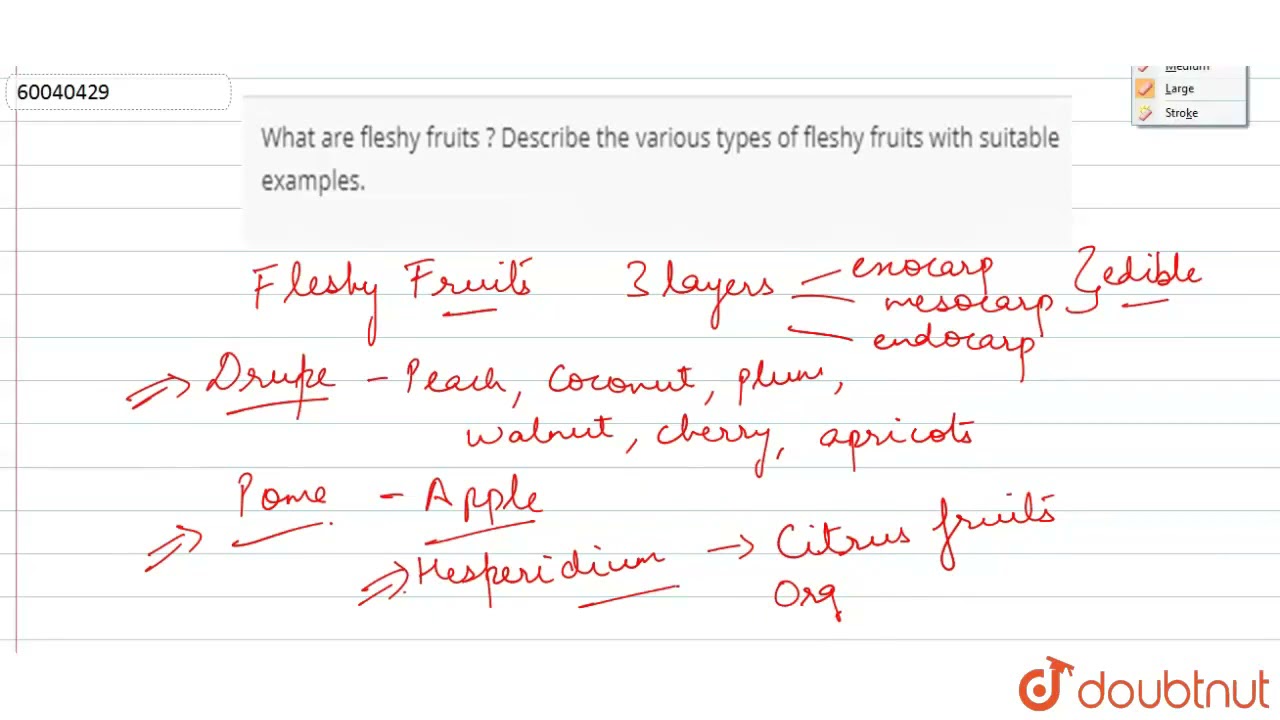 Medium
60040429
Large
Stroke
What are fleshy fruits ? Describe the various types of fleshy fruits with suitable
examples.
Fleshy Fruits 3 layers enocarp edible
mesocarp
endocarp
Drupe - Peach, coconut, plum,
walnut, cherry, apricots
Pome - Apple
Hesperidium → Citrus fruits
Orq
doubtnut